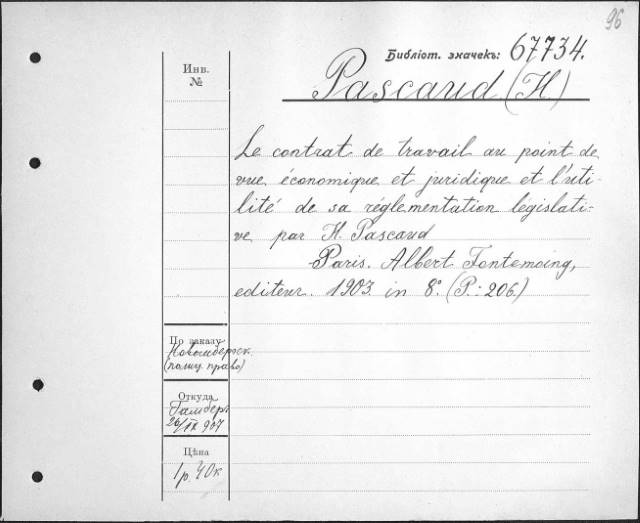 96
Библіот. значекъ: 67734.
Инв.
№
Pascaud (H)
Le contrat de travail au point de
vue économique et juridique et l'uti-
lité de sa réglementation législati-
ve par H. Pascaud
Paris. Albert Fontemoing,
editeur. 1903. in 8°. (P.: 206.)
По заказу
Новомбергск.
(полиц. право)
Откуда
Гамберг
26/IX 907
Цѣна
1 р. 40 к